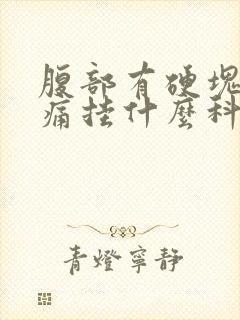 腹部有硬塊
痛挂什麼科
青燈寧靜